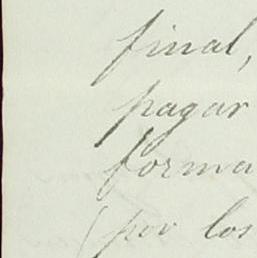 final,
pagar
forma
(por los